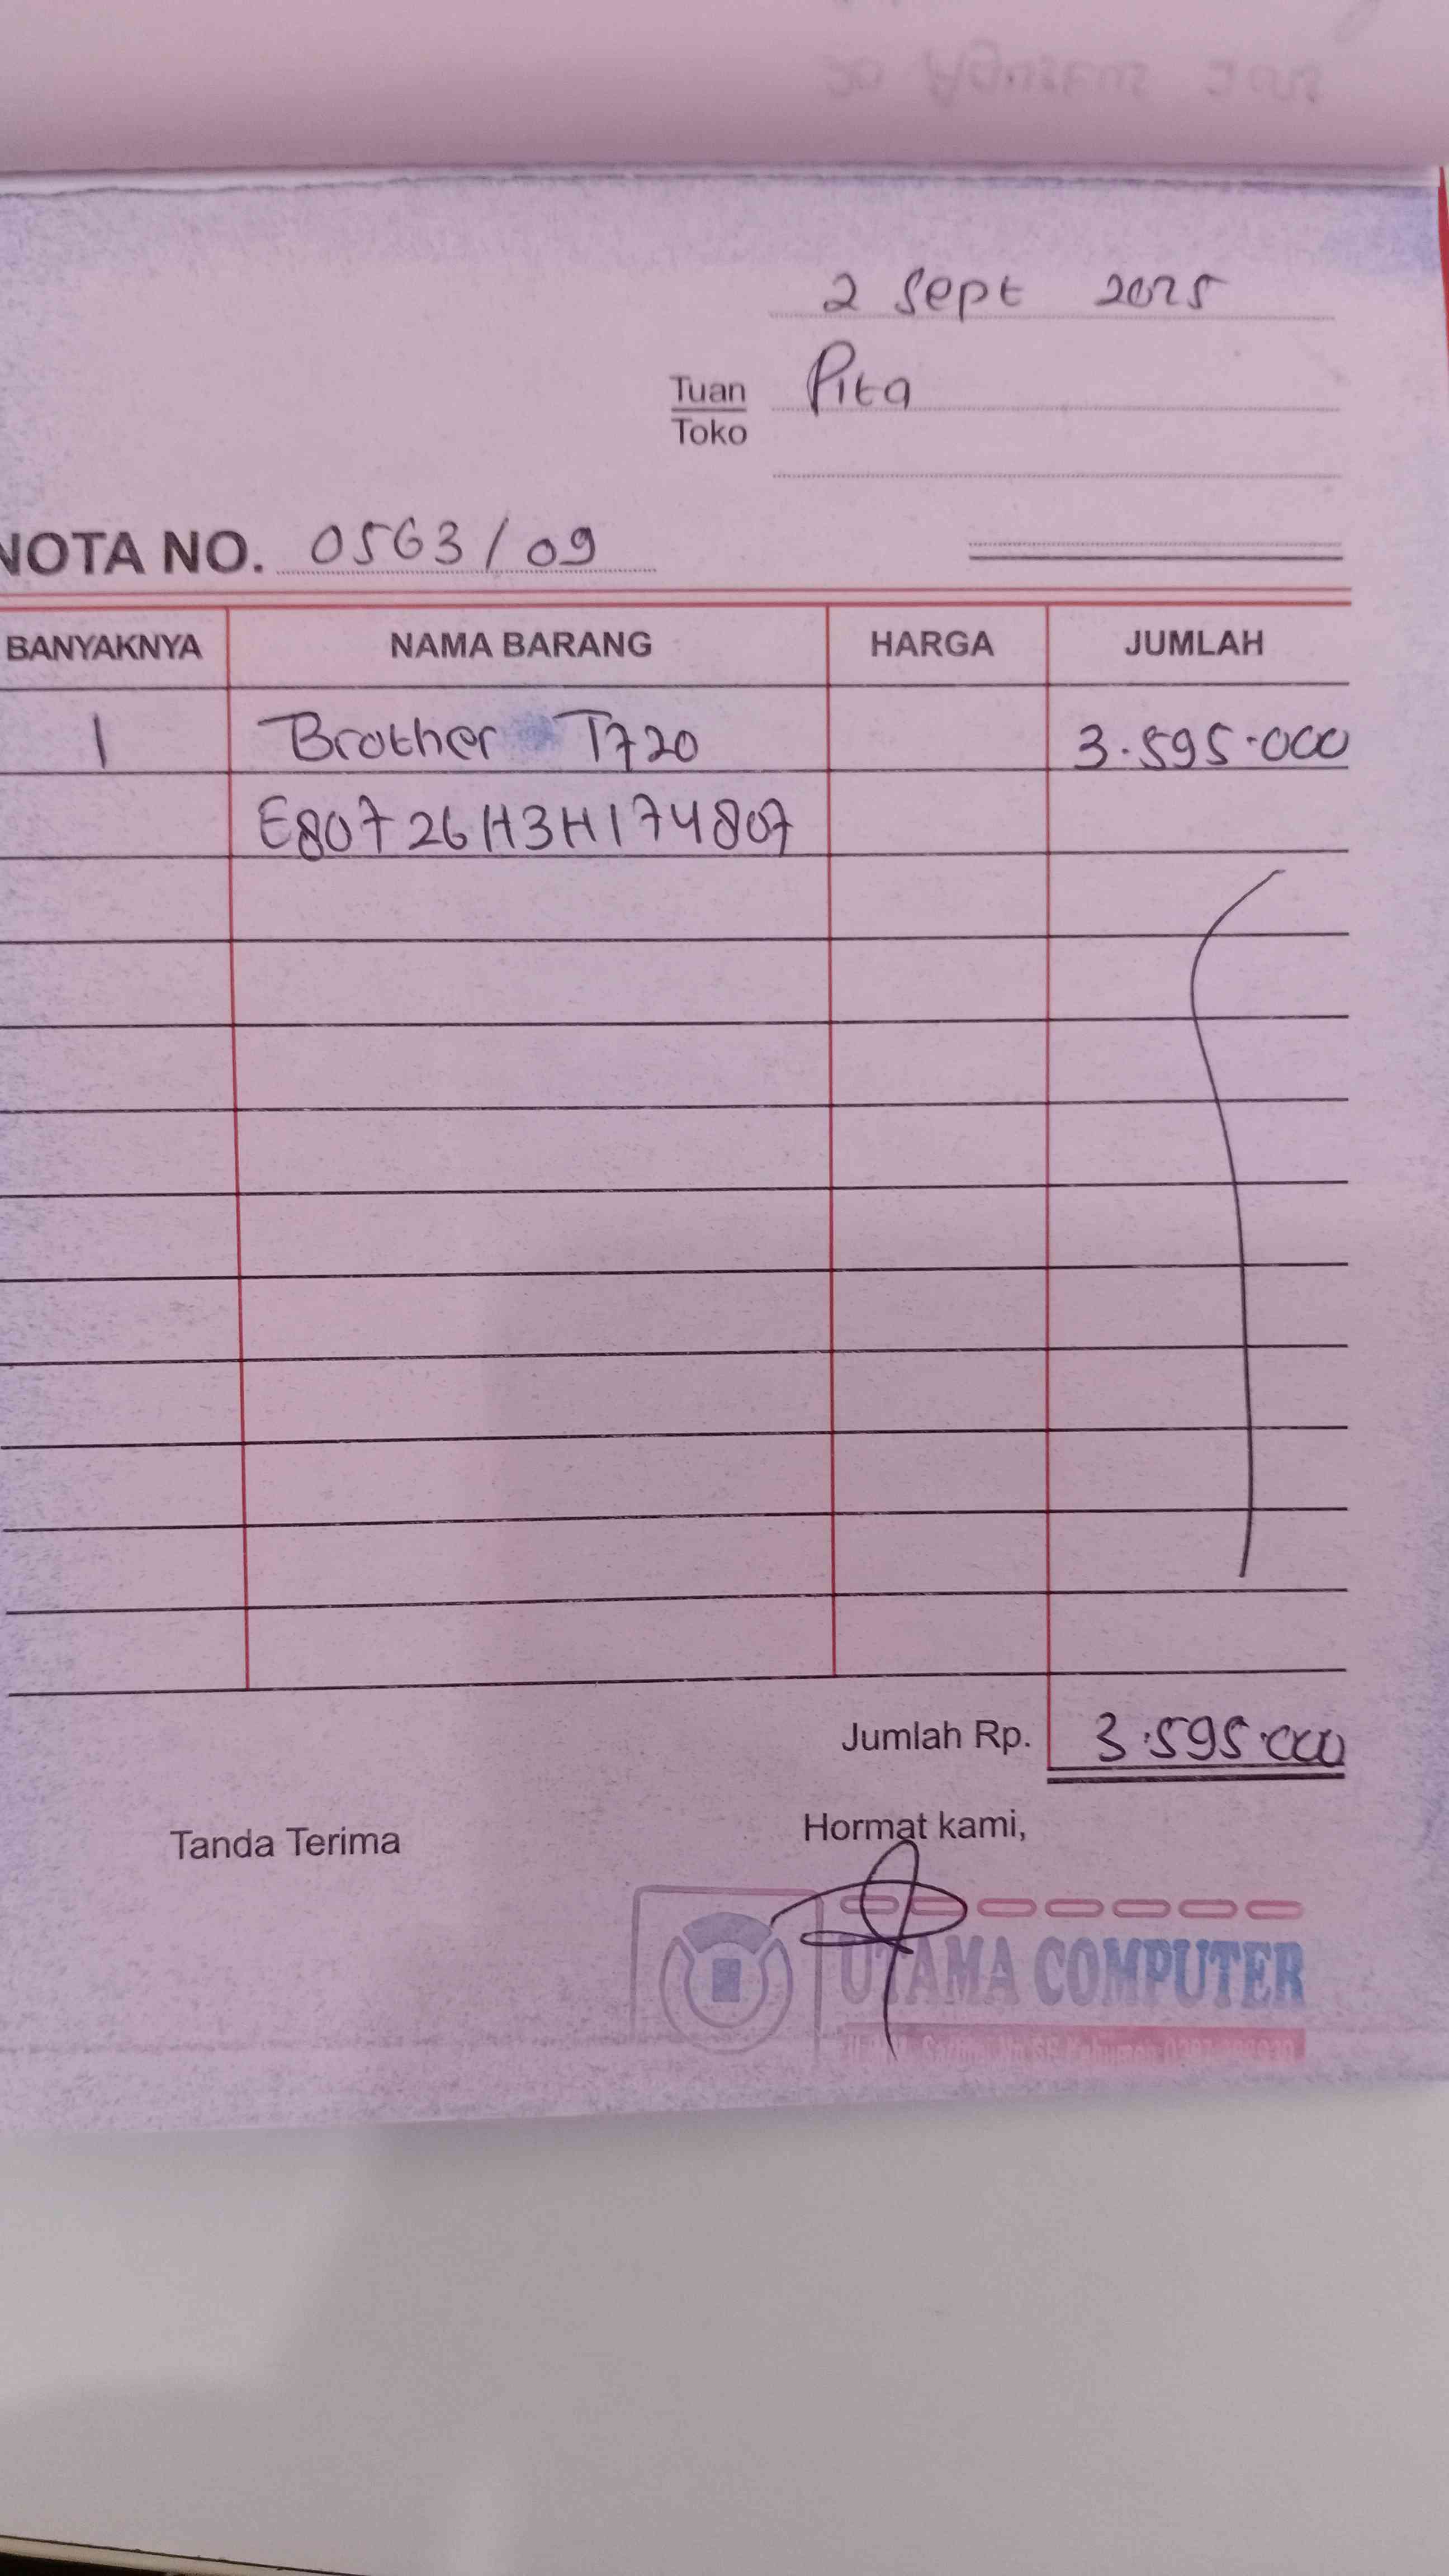 2 Sept 2025
Tuan Pita
Toko
NOTA NO. 0563/09
BANYAKNYA NAMA BARANG HARGA JUMLAH
1 Brother T720 3.595.000
E80726H3H174807
Jumlah Rp. 3.595.000
Tanda Terima Hormat kami,
UTAMA COMPUTER